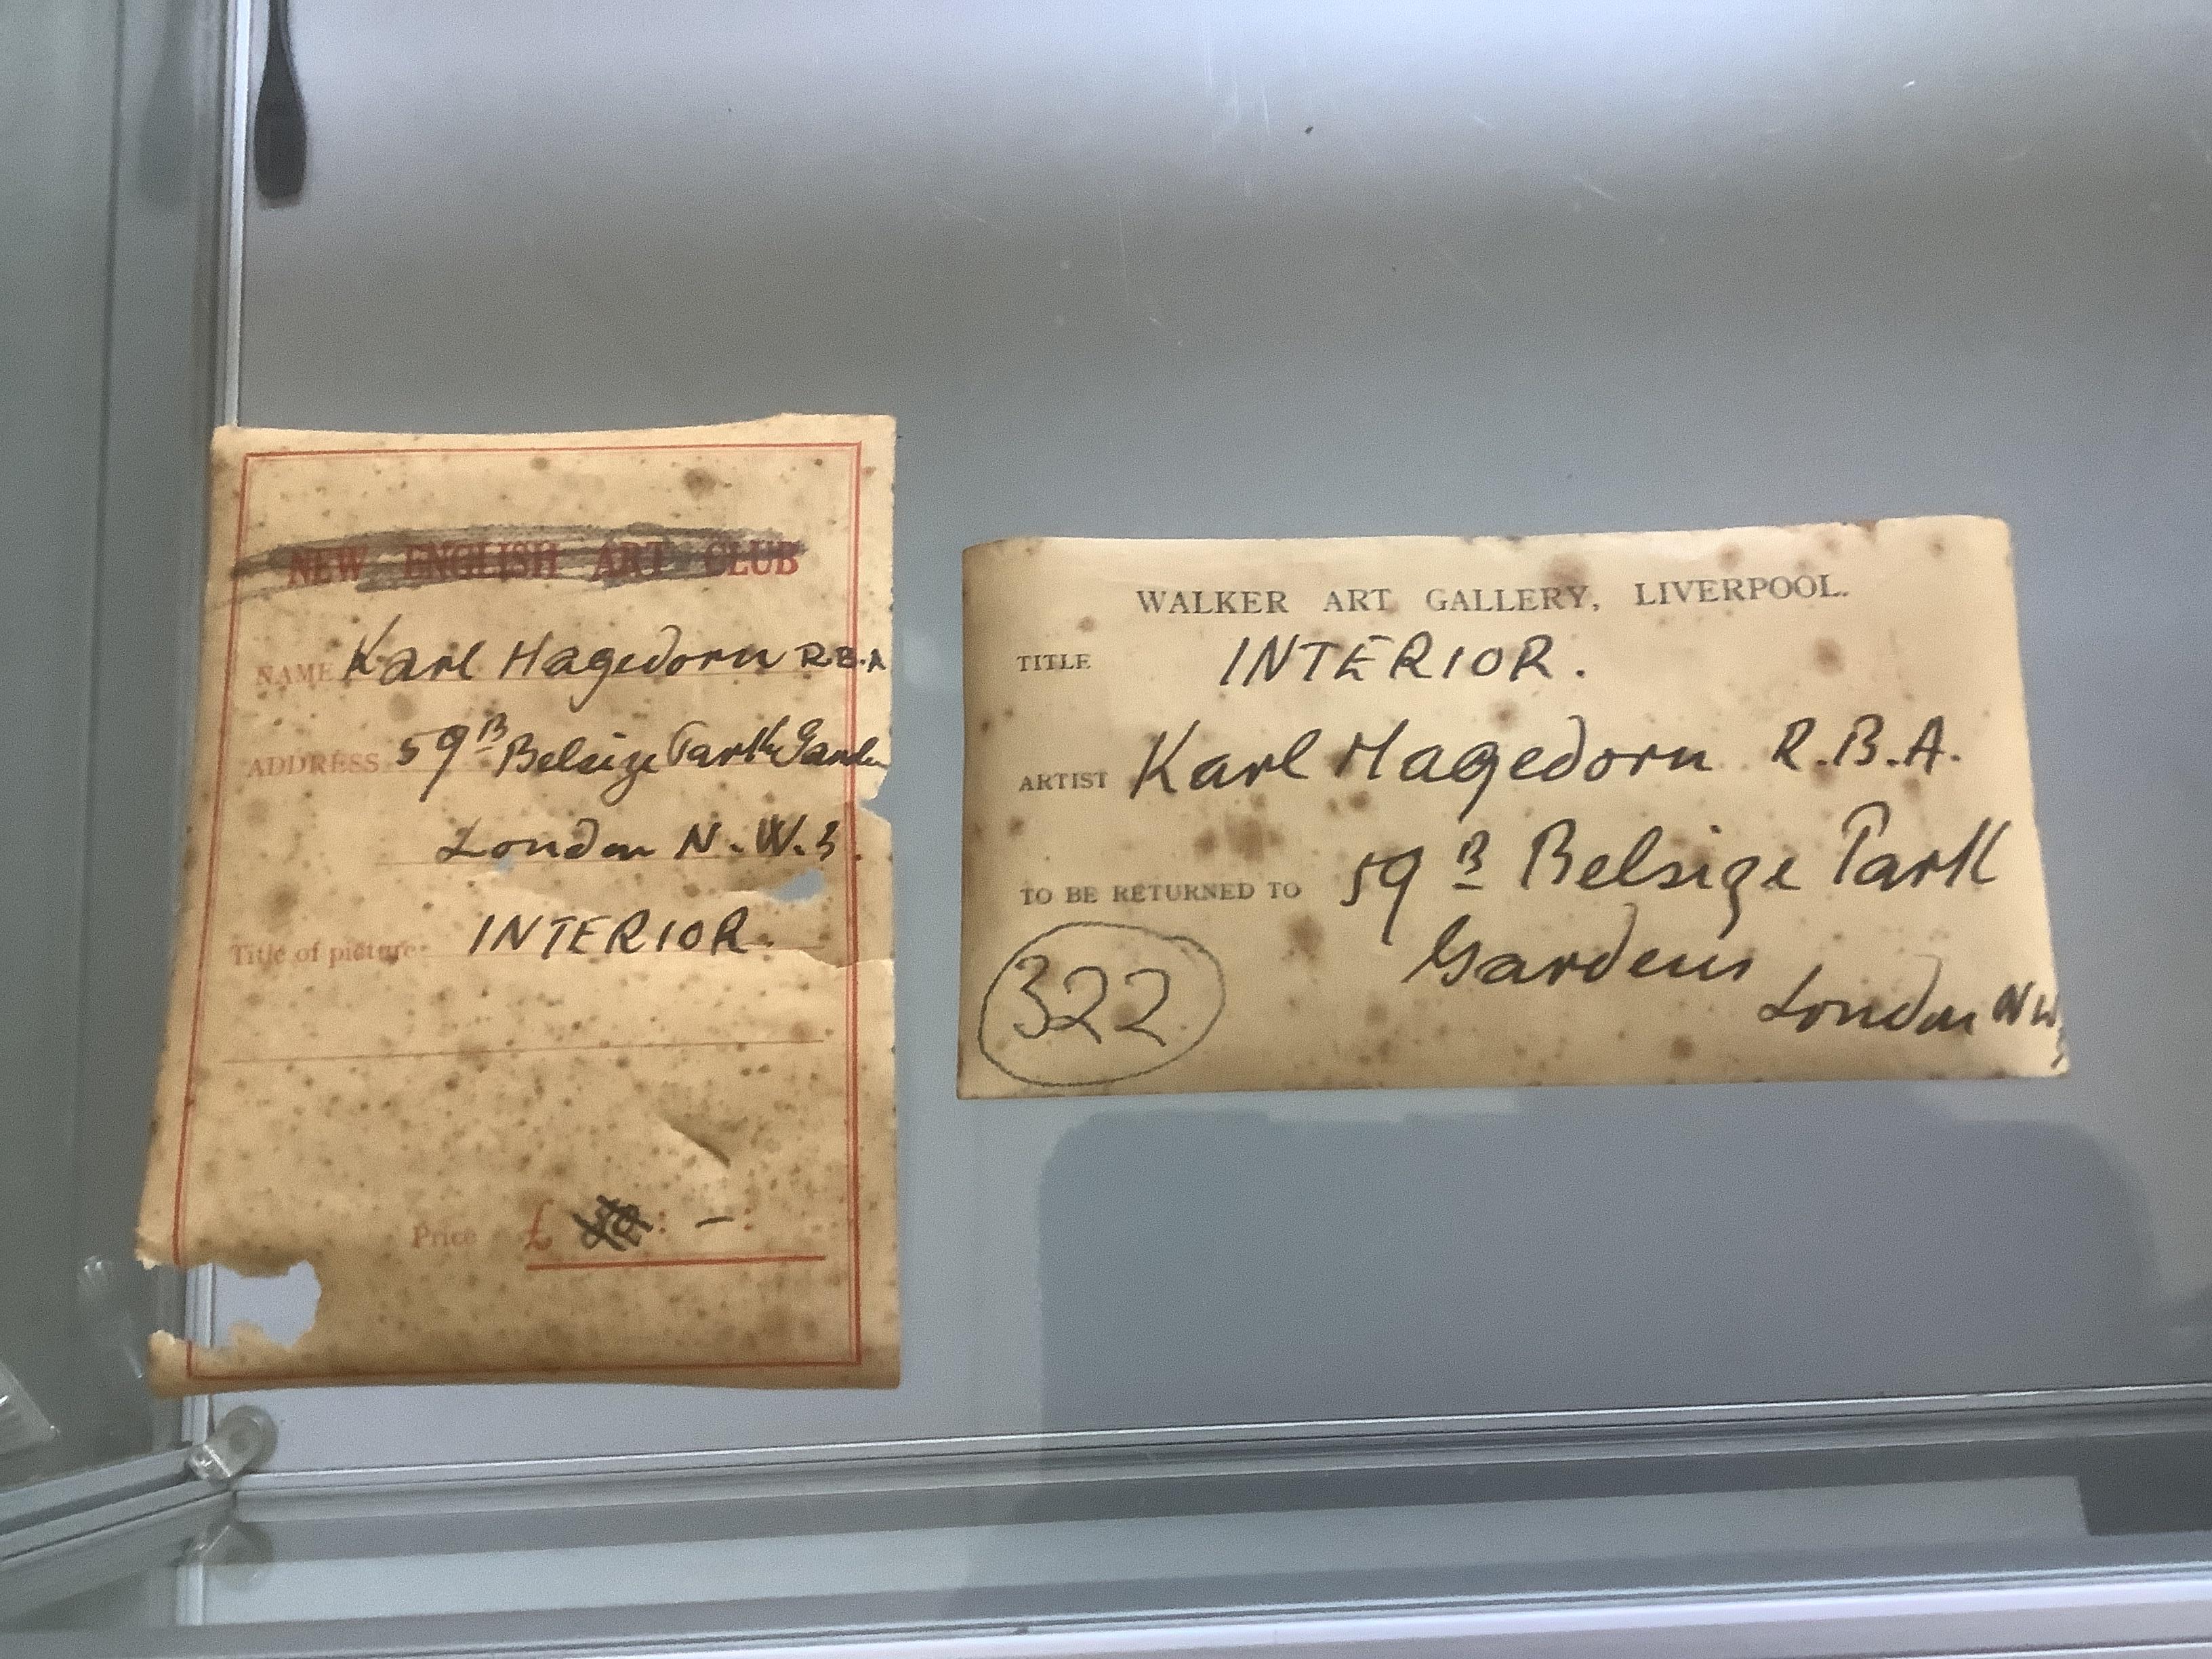 NEW ENGLISH ART CLUB
NAME Karl Hagedorn R.B.A
ADDRESS 59B Belsize Park Garden
London N.W.3.
Title of picture INTERIOR.
Price £ : - :
WALKER ART GALLERY, LIVERPOOL.
TITLE INTERIOR.
ARTIST Karl Hagedorn R.B.A.
TO BE RETURNED TO 59B Belsize Park
Gardens
London NW3
322